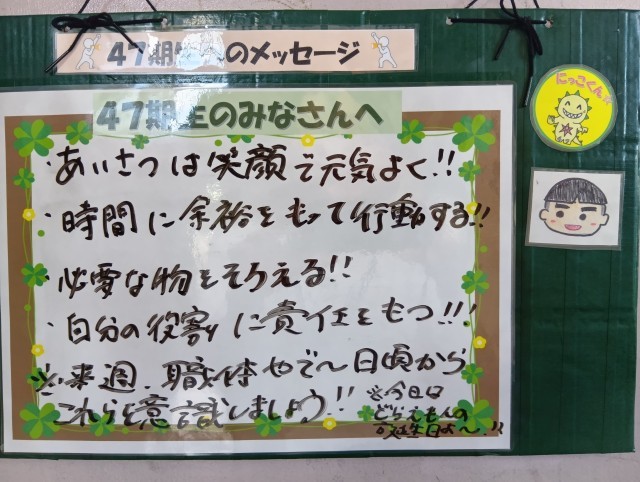 47期 のメッセージ
にっこくん
47期生のみなさんへ
・あいさつは笑顔で元気よく!!
・時間に余裕をもって行動する!!
・必要な物をそろえる!!
・自分の役割に責任をもつ!!!
※来週、職体やで〜日頃から
これらを意識しましょう!!
※今日は
どらえもんの
誕生日よ〜!!